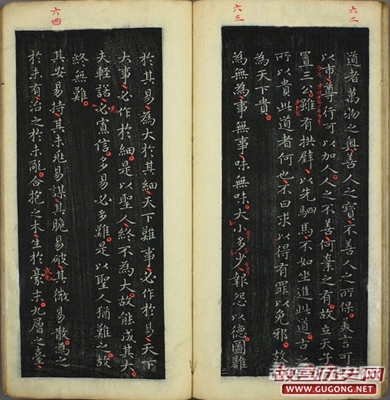 六二
六三
道者萬物之奧善人之寶不善人之所保美言可
以市尊行可以加人人之不善何棄之有故立天子
置三公雖有拱璧以先駟馬不如坐進此道古之
所以貴此道者何也不曰求以得有罪以免邪故
為天下貴
為無為事無事味無味大小多少報怨以德圖難
六四
於其易為大於其細天下難事必作於易天下
大事必作於細是以聖人終不為大故能成其大
夫輕諾必寡信多易必多難是以聖人猶難之故
終無難
其安易持其未兆易謀其脆易破其微易散為之
於未有治之於未亂合抱之木生於豪末九層之臺
故宫历史网
www.gugong.net